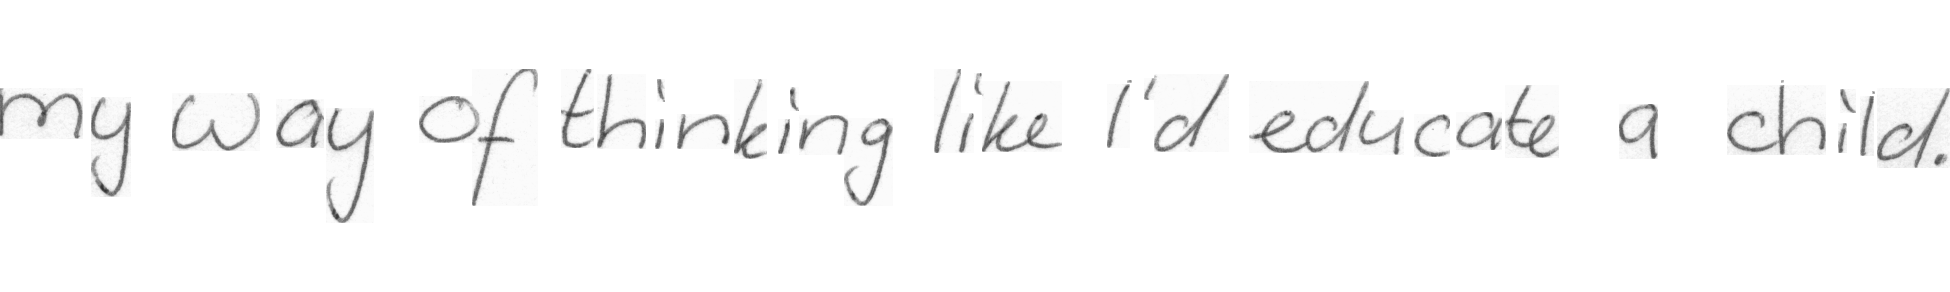 my way of thinking like I'd educate a child.